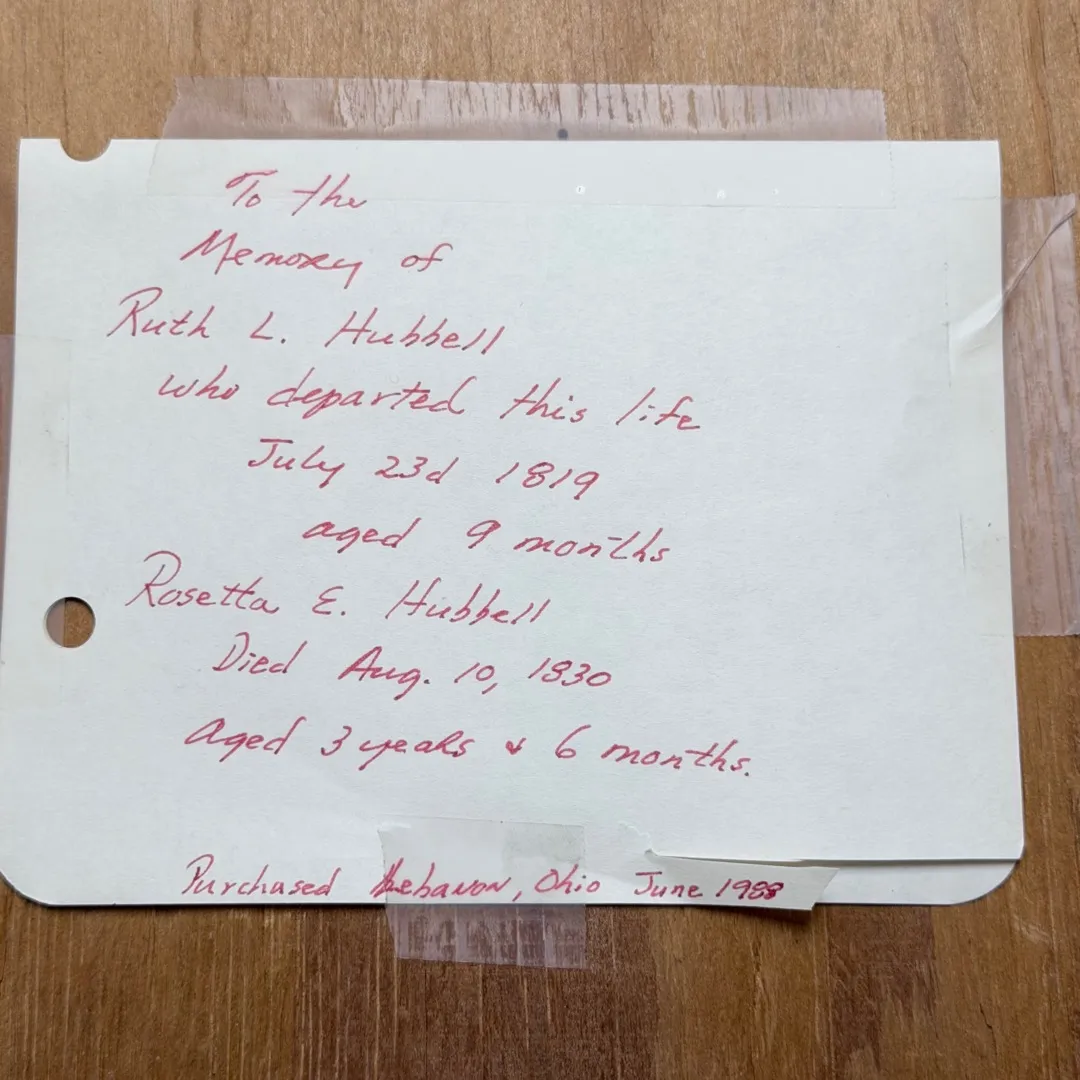 To the
Memory of
Ruth L. Hubbell
who departed this life
July 23d 1819
aged 9 months
Rosetta E. Hubbell
Died Aug. 10, 1830
aged 3 years & 6 months.
Purchased Lebanon, Ohio June 1988